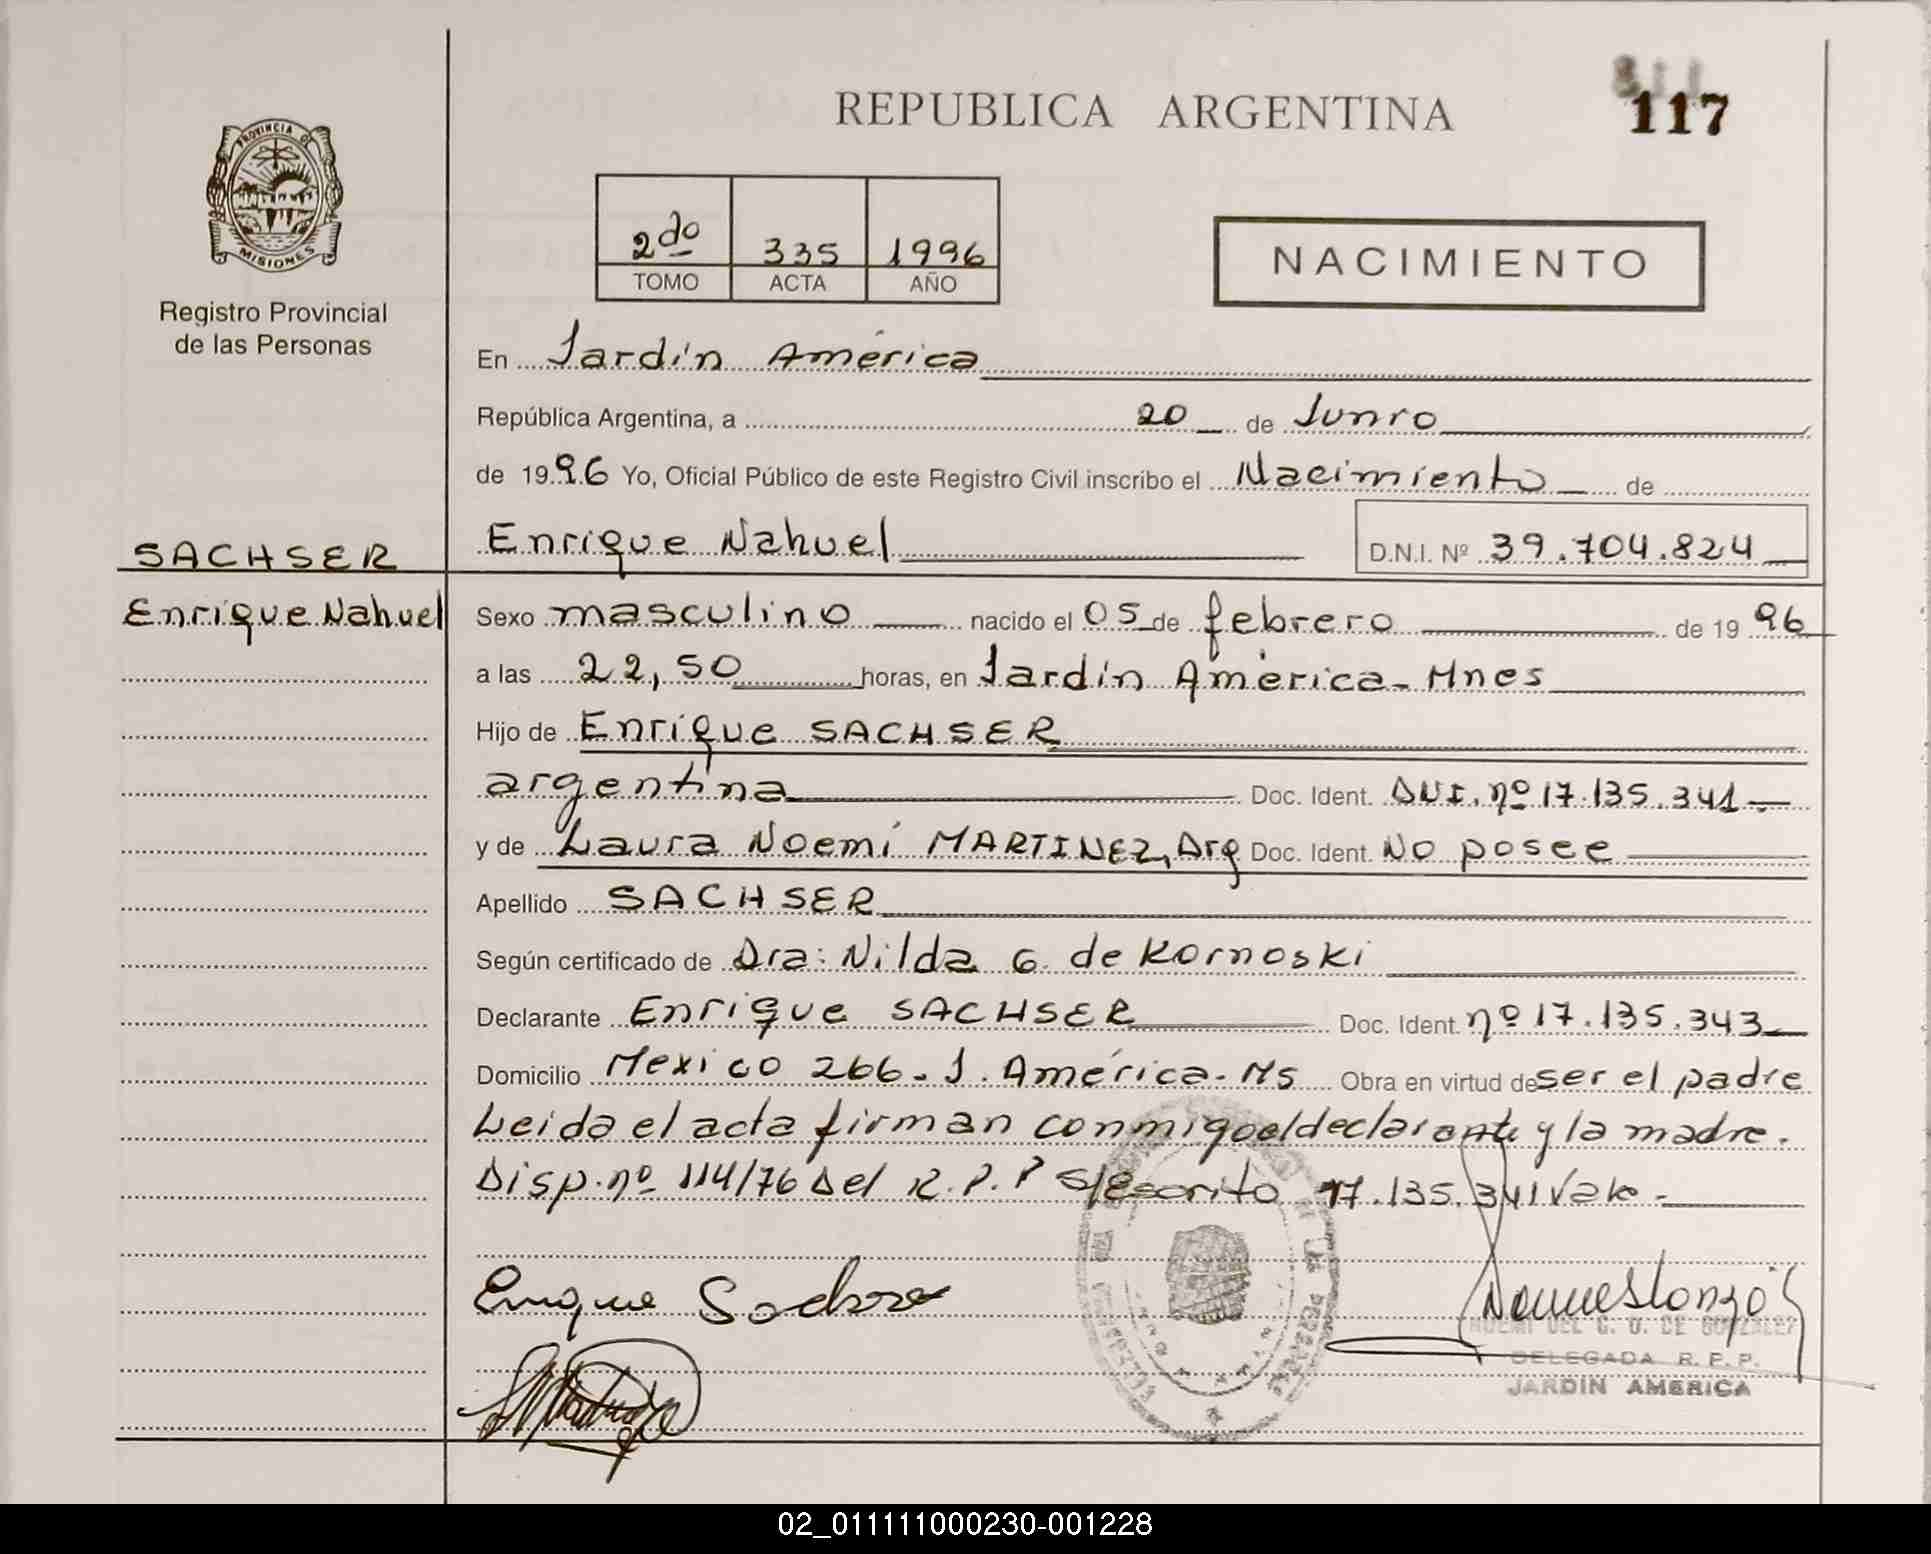 REPUBLICA ARGENTINA
117
PROVINCIA DE
MISIONES
Registro Provincial
de las Personas
2do 335 1996
TOMO ACTA AÑO
NACIMIENTO
En Jardín América
República Argentina, a 20 de Junio
de 1996 Yo, Oficial Público de este Registro Civil inscribo el Nacimiento de
Enrique Nahuel D.N.I. Nº 39.704.824
SACHSER
Enrique Nahuel
Sexo masculino nacido el 05 de febrero de 1996
a las 22,50 horas, en Jardín América - Mnes
Hijo de Enrique SACHSER
argentina Doc. Ident. DNI. nº 17.135.341
y de Laura Noemí MARTINEZ, Arg Doc. Ident. No posee
Apellido SACHSER
Según certificado de Dra: Nilda G. de Kornoski
Declarante Enrique SACHSER Doc. Ident. nº 17.135.343
Domicilio Mexico 266 - J. América - Ms Obra en virtud de ser el padre
Leida el acta firman conmigo el declarante y la madre.
Disp. nº 114/76 Del R.P.P S/Escrito 17.135.341 Vale -
Enrique
DELEGADA R. P. P.
JARDIN AMERICA
02_011111000230-001228